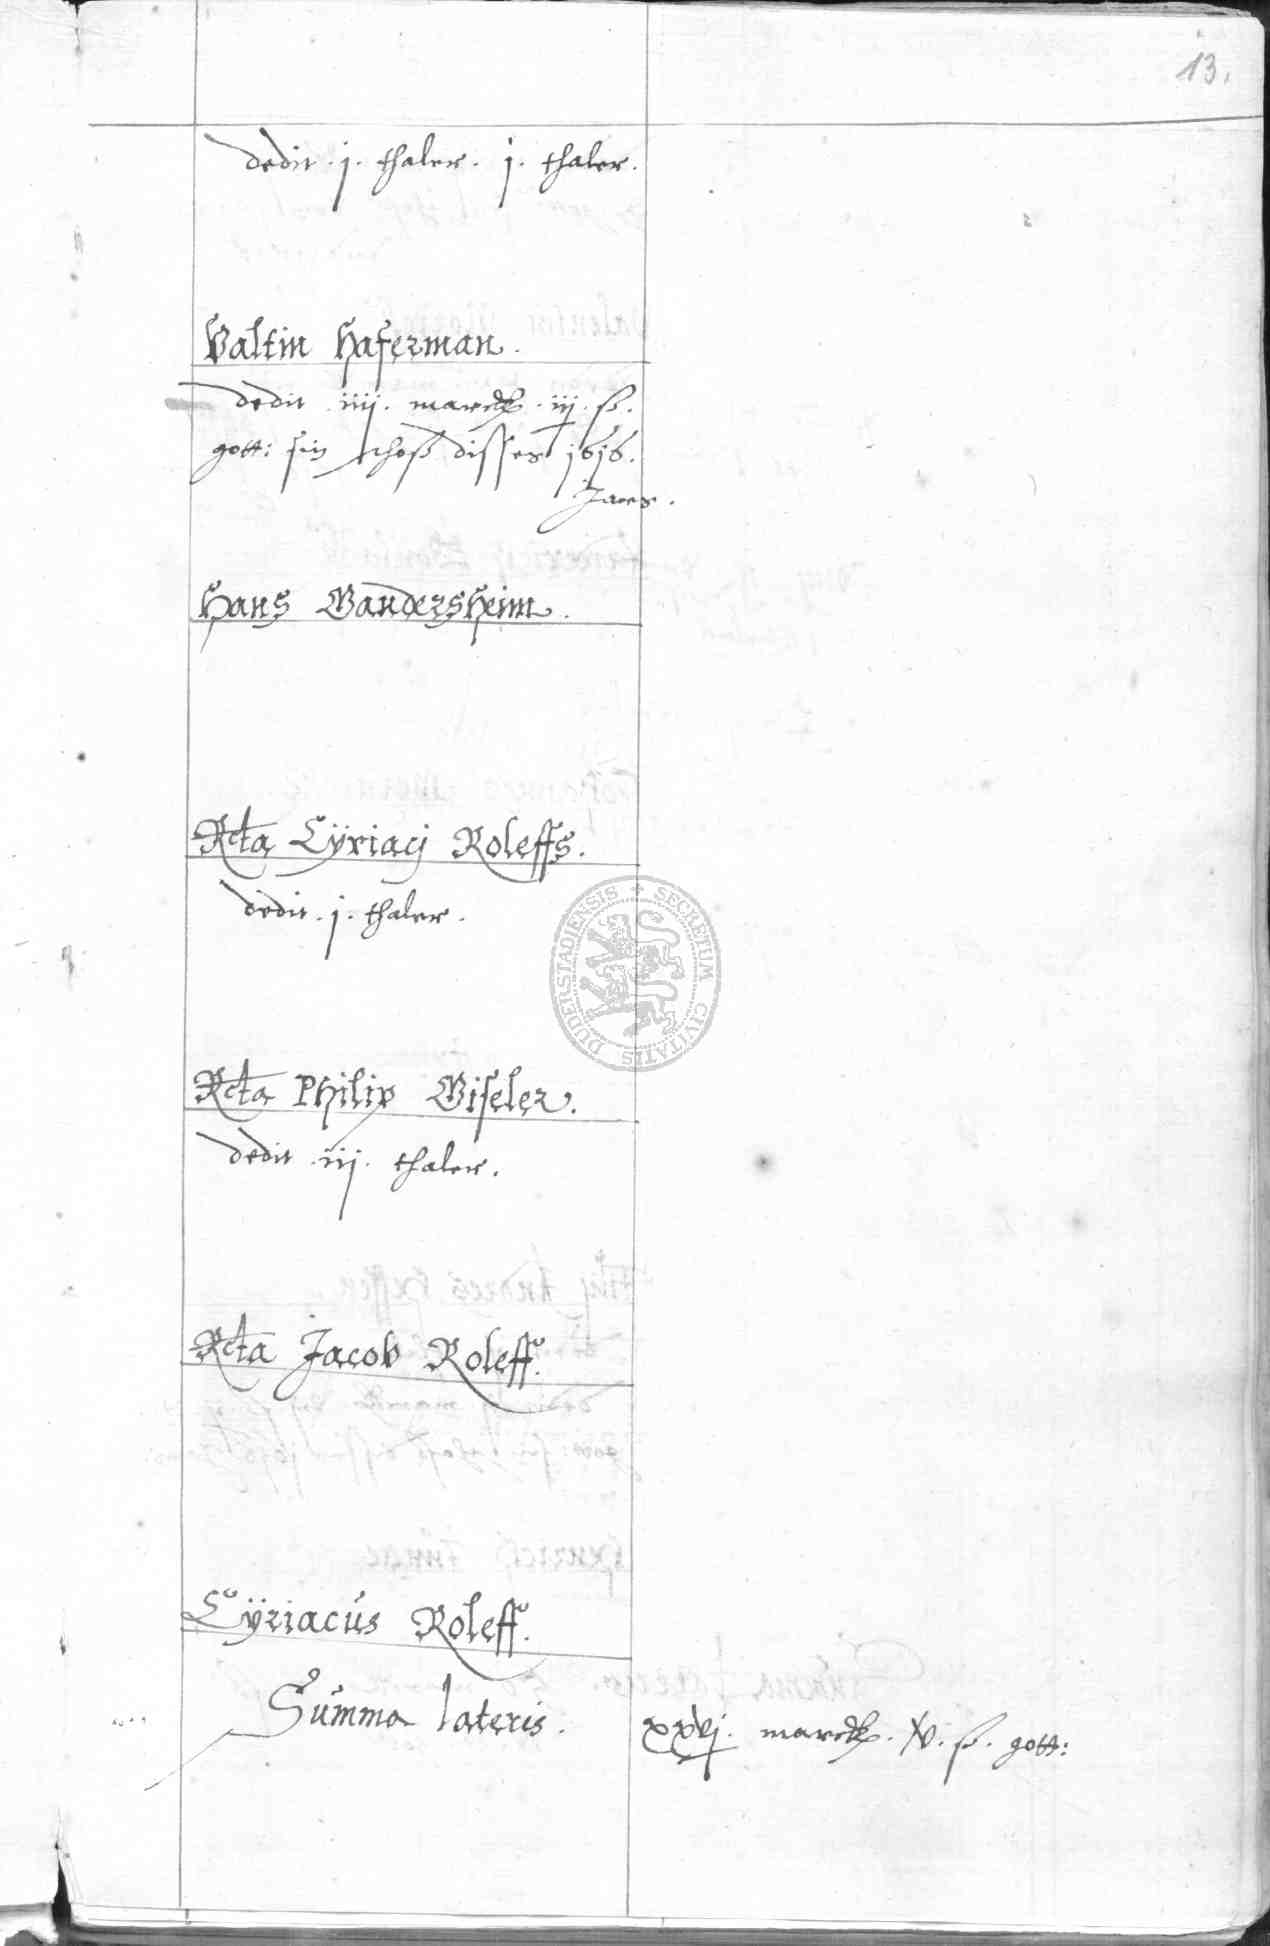 13.
dedit . j . thaler . j . thaler .
Valtin Haferman .
dedit . iiij . marck . iij . ß .
gott: sin schoß disses 1616 .
Jares .
Hans Gandersheim .
Rcta Cÿriacj Roleffs .
dedit . j . thaler .
Rcta Philip Giseler .
dedit . iij . thaler .
Rcta Jacob Roleff .
Cÿriacus Roleff .
Summa lateris .
xxvj . marck . v . ß . gott:
SECRETUM CIVITATIS DUDERSTADIENSIS